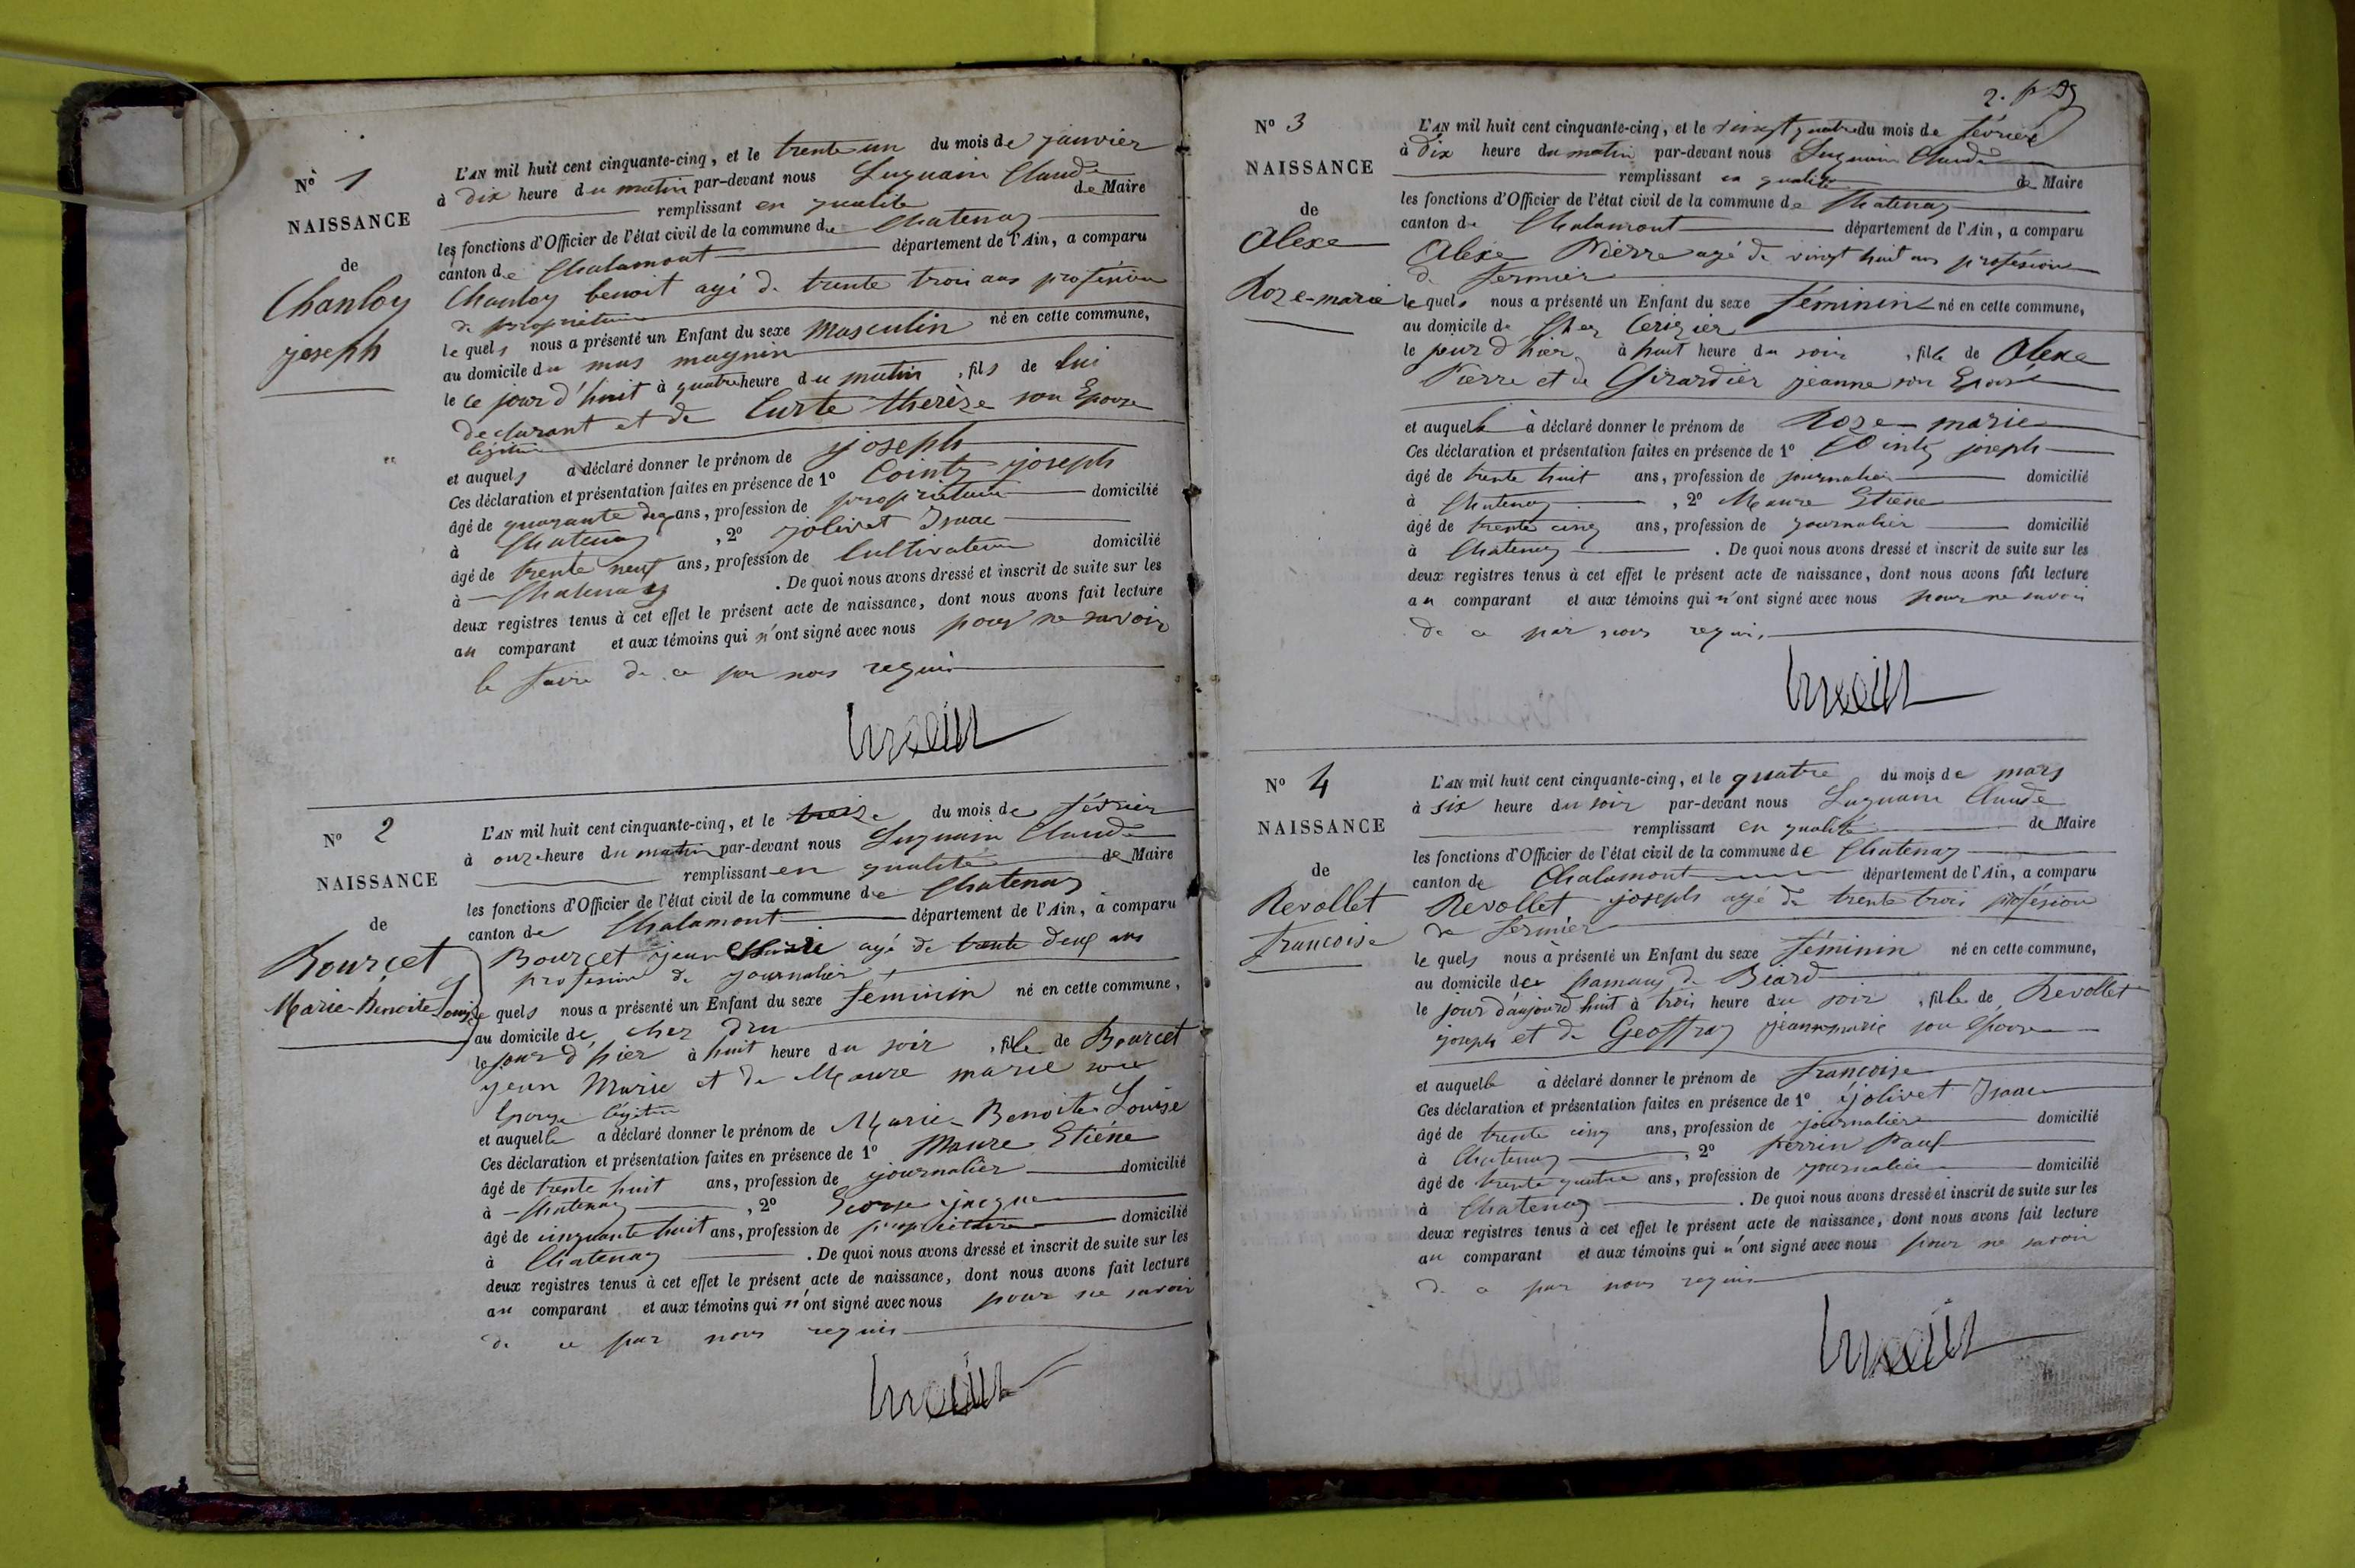 Nº 1
NAISSANCE
de
Chanloy
joseph
L'AN mil huit cent cinquante-cinq, et le trente un du mois de janvier
à dix heure du matin par-devant nous Luquain Claude
remplissant en qualité de Maire
les fonctions d'Officier de l'état civil de la commune de Chatenay
canton de Chalamont département de l'Ain, a comparu
Chanloy benoit agé de trente trois ans profésion
de propriétaire
le quel nous a présenté un Enfant du sexe Masculin né en cette commune,
au domicile du mas magnin
le ce jour d'huit à quatre heure du matin, fils de lui
declarant et de Curte therèze son Epouze
légitime
et auquel a déclaré donner le prénom de joseph
Ces déclaration et présentation faites en présence de 1º Cointy joseph
âgé de quarante deux ans, profession de propriétaire domicilié
à Chatenay, 2º jolivet Isaac
âgé de trente neuf ans, profession de Cultivateur domicilié
à Chatenay. De quoi nous avons dressé et inscrit de suite sur les
deux registres tenus à cet effet le présent acte de naissance, dont nous avons fait lecture
au comparant et aux témoins qui n'ont signé avec nous pour ne savoir
le faire de ce par nous requis
Nº 2
NAISSANCE
de
Bourcet
Marie-Benoite Louise
L'AN mil huit cent cinquante-cinq, et le treize du mois de février
à onze heure du matin par-devant nous Luquain Claude
remplissant en qualité de Maire
les fonctions d'Officier de l'état civil de la commune de Chatenay
canton de Chalamont département de l'Ain, a comparu
Bourcet jean Marie agé de trente deux ans
profession de journalier
le quel nous a présenté un Enfant du sexe féminin né en cette commune,
au domicile de chez dru
le jour d'hier à huit heure du soir, fille de Bourcet
jean Marie et de Maure marie son
Epouse légitime
et auquelle a déclaré donner le prénom de Marie-Benoite Louise
Ces déclaration et présentation faites en présence de 1º Maure Etiéne
âgé de trente huit ans, profession de journalièr domicilié
à Chatenay, 2º jacque
âgé de cinquante huit ans, profession de propriétaire domicilié
à Chatenay. De quoi nous avons dressé et inscrit de suite sur les
deux registres tenus à cet effet le présent acte de naissance, dont nous avons fait lecture
au comparant et aux témoins qui n'ont signé avec nous pour ne savoir
de ce par nous requis
Nº 3
NAISSANCE
de
Alexe
Roze-marie
L'AN mil huit cent cinquante-cinq, et le vingt quatre du mois de février
à dix heure du matin par-devant nous Luquain Claude
remplissant en qualité de Maire
les fonctions d'Officier de l'état civil de la commune de Chatenay
canton de Chalamont département de l'Ain, a comparu
Alexe Pierre agé de vingt huit ans profésion
de fermier
le quel nous a présenté un Enfant du sexe féminin né en cette commune,
au domicile de Chez Cerizier
le jour d'hier à huit heure du soir, fille de Alexe
Pierre et de Girardier jeanne son Epouse
et auquelle à déclaré donner le prénom de Roze-marie
Ces déclaration et présentation faites en présence de 1º Cointy joseph
âgé de trente huit ans, profession de journalier domicilié
à Chatenay, 2º Maure Etiene
âgé de trente cinq ans, profession de journalier domicilié
à Chatenay. De quoi nous avons dressé et inscrit de suite sur les
deux registres tenus à cet effet le présent acte de naissance, dont nous avons fait lecture
au comparant et aux témoins qui n'ont signé avec nous pour ne savoir
de ce par nous requis
Nº 4
NAISSANCE
de
Revollet
francoise
L'AN mil huit cent cinquante-cinq, et le quatre du mois de mars
à six heure du soir par-devant nous Luquain Claude
remplissant en qualité de Maire
les fonctions d'Officier de l'état civil de la commune de Chatenay
canton de Chalamont département de l'Ain, a comparu
Revollet joseph agé de trente trois profésion
de fermièr
le quel nous à présenté un Enfant du sexe féminin né en cette commune,
au domicile de Biard
le jour d'aujourd'huit à trois heure du soir, fille de Revollet
joseph et de Geoffray jeanne marie son Epouse
et auquelle à déclaré donner le prénom de françoise
Ces déclaration et présentation faites en présence de 1º jolivet Isaac
âgé de trente cinq ans, profession de journalier domicilié
à Chatenay, 2º Perrin Paul
âgé de trente quatre ans, profession de journalier domicilié
à Chatenay. De quoi nous avons dressé et inscrit de suite sur les
deux registres tenus à cet effet le présent acte de naissance, dont nous avons fait lecture
au comparant et aux témoins qui n'ont signé avec nous pour ne savoir
de ce par nous requis